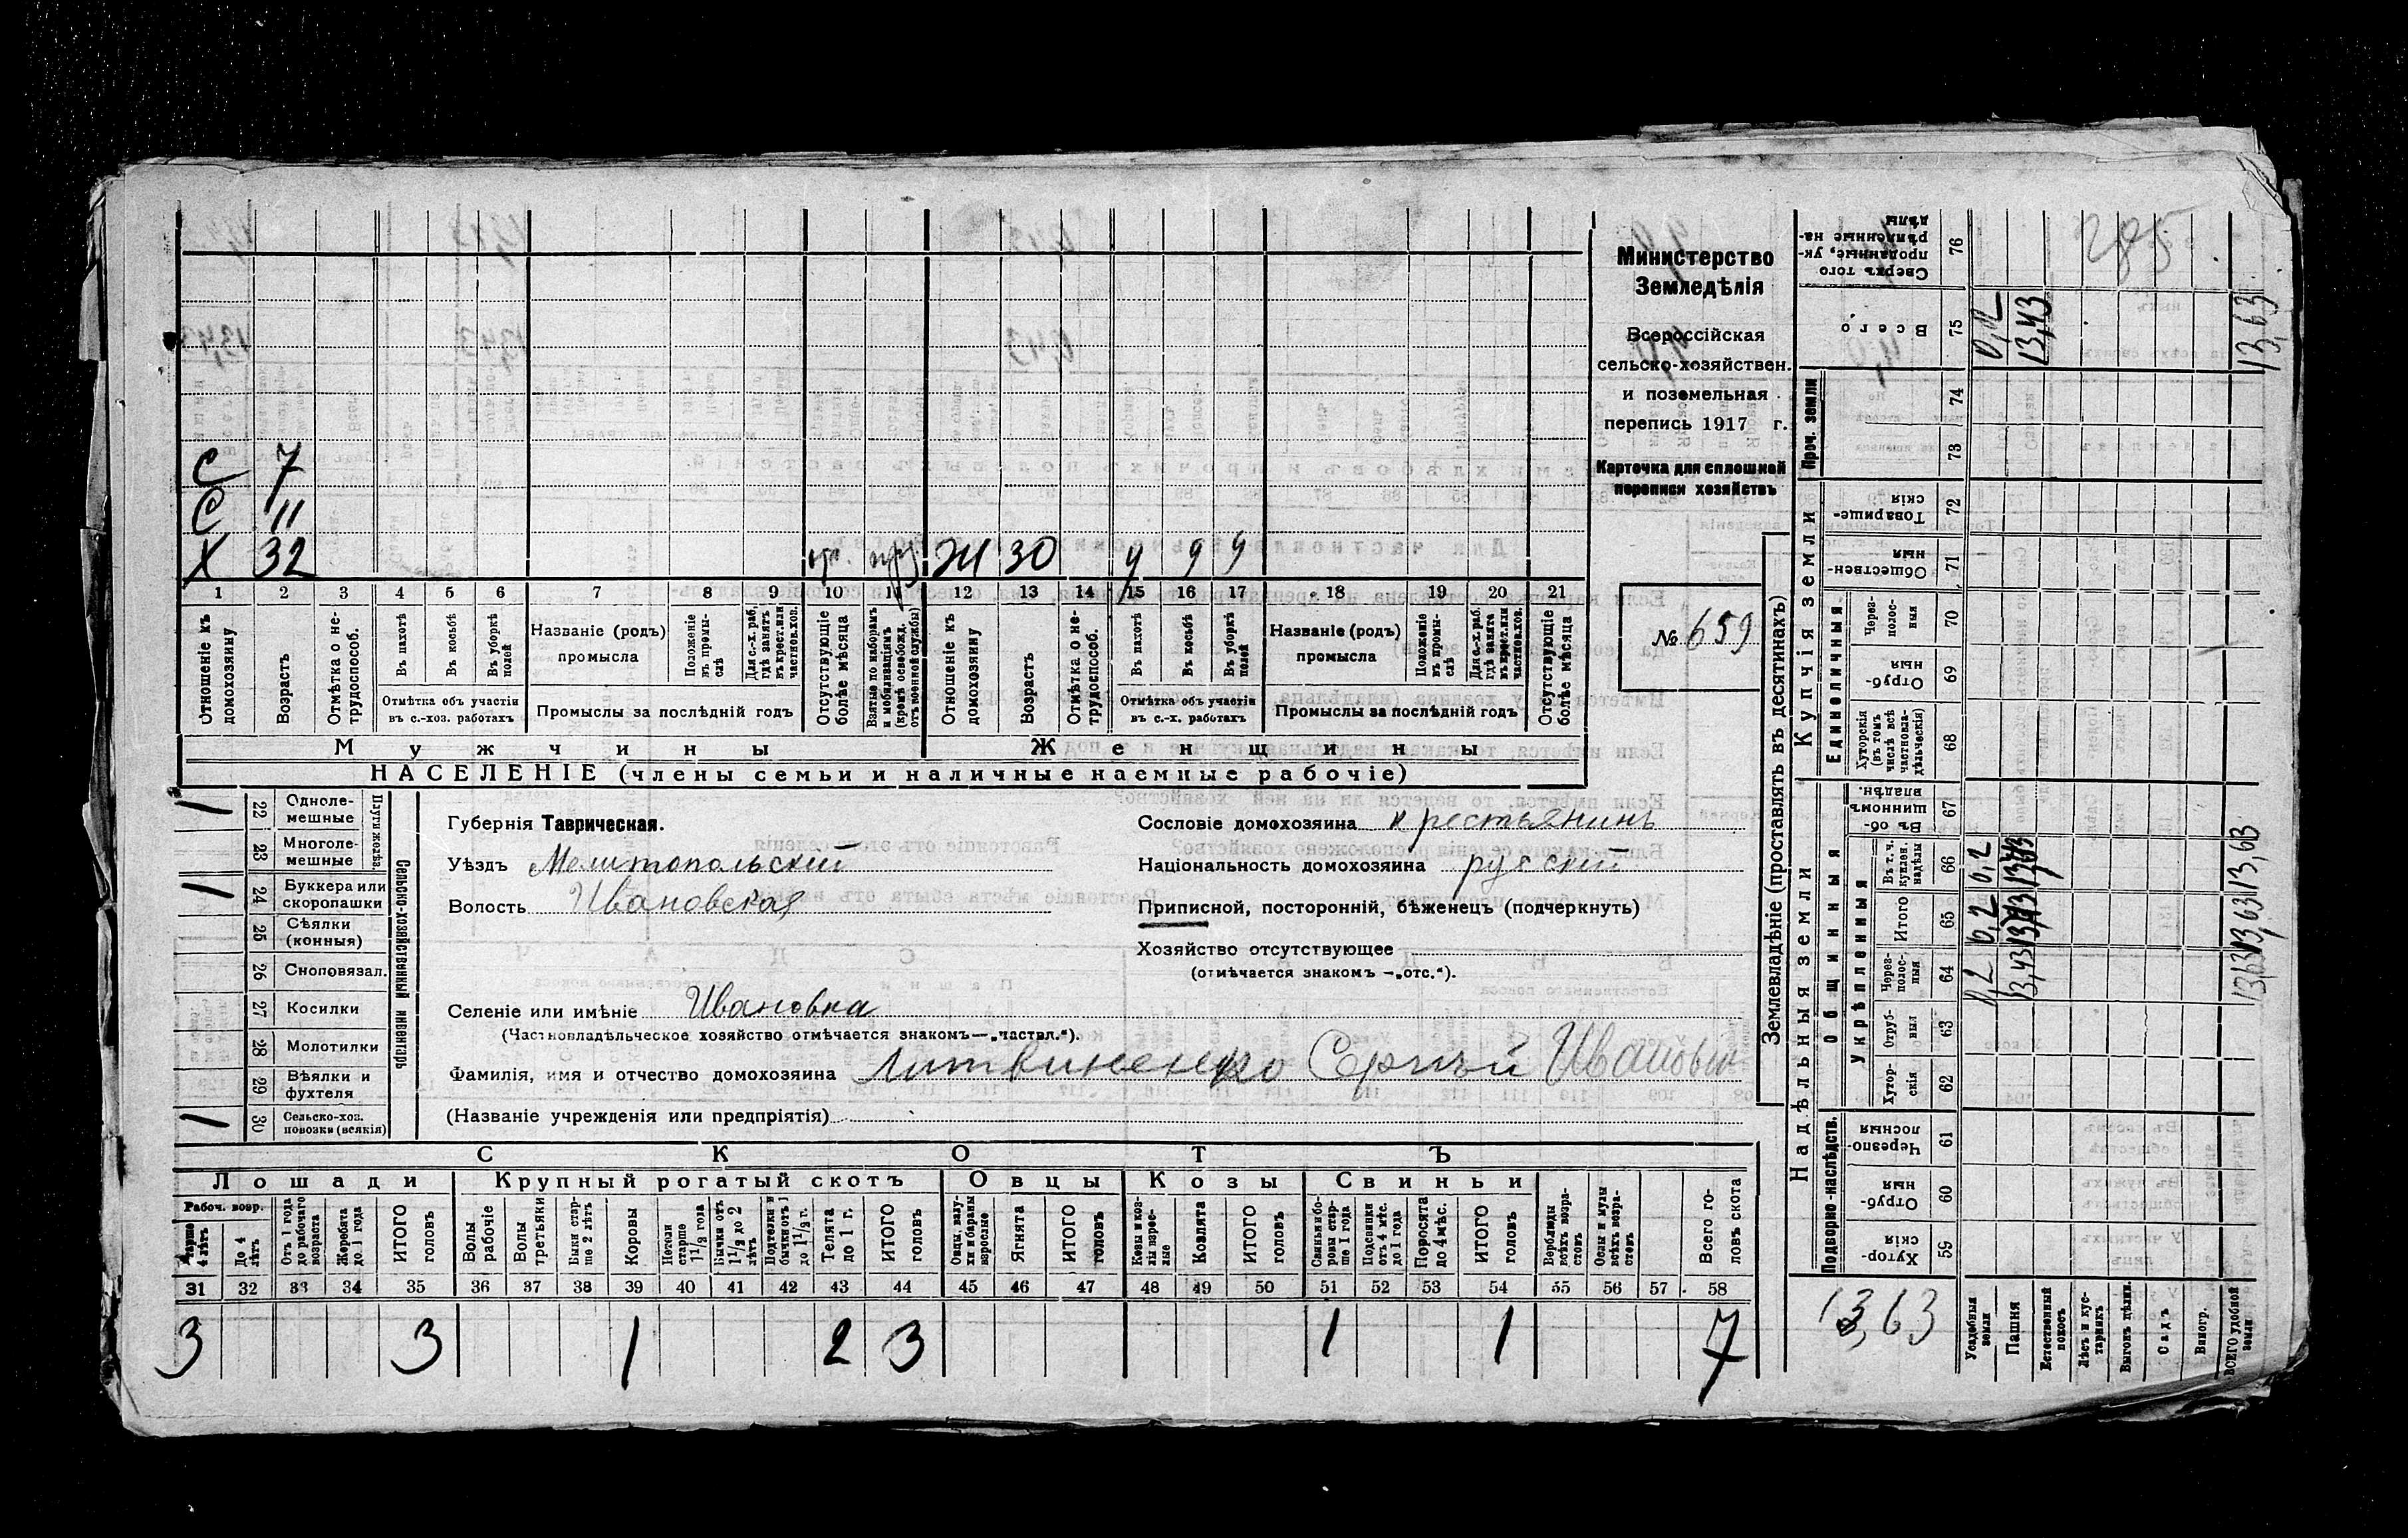 С 7
С 11
Х 32 Ж 30 у у у
1 2 3 4 5 6 7 8 9 10 11 12 13 14 15 16 17 18 19 20 21
Отношеніе къ домохозяину
Возрастъ
Отмѣтка о нетрудоспособ.
Въ пахотѣ
Въ косьбѣ
Въ уборкѣ полей
Отмѣтка объ участіи
въ с.-хоз. работахъ
Названіе (родъ)
промысла
Положеніе въ промыслѣ
Для с.-х. раб. гдѣ занятъ въ крест. или частнов. хоз.
Промыслы за послѣдній годъ
Отсутствующіе болѣе мѣсяца
Взятые по наборамъ и мобилизаціямъ (кромѣ освобожд. отъ военной службы)
Отношеніе къ домохозяину
Возрастъ
Отмѣтка о нетрудоспособ.
Въ пахотѣ
Въ косьбѣ
Въ уборкѣ полей
Отмѣтка объ участіи
въ с.-х. работахъ
Названіе (родъ)
промысла
Положеніе въ промыслѣ
Для с.-х. раб. гдѣ занята въ крест. или частнов. хоз.
Промыслы за послѣдній годъ
Отсутствующіе болѣе мѣсяца
Мужчины Женщины
НАСЕЛЕНІЕ (члены семьи и наличные наемные рабочіе)
Министерство
Земледѣлія
Всероссійская
сельско-хозяйствен.
и поземельная
перепись 1917 г.
Карточка для сплошной
переписи хозяйствъ
№ 659
Сельско-хозяйственный инвентарь
Плуги желѣз.
1 22 Однолемешные
23 Многолемешные
1 24 Буккера или скоропашки
25 Сѣялки (конныя)
26 Сноповязал.
27 Косилки
28 Молотилки
29 Вѣялки и фухтеля
1 30 Сельско-хоз. повозки (всякія)
Губернія Таврическая.
Уѣздъ Мелитопольскій
Волость Ивановская
Селеніе или имѣніе Ивановка
(Частновладѣльческое хозяйство отмѣчается знакомъ—„частвл.“).
Фамилія, имя и отчество домохозяина Литвиненко Сергѣй Иванович
(Названіе учрежденія или предпріятія)
Сословіе домохозяина крестьянинъ
Національность домохозяина русскій
Приписной, посторонній, бѣженецъ (подчеркнуть)
Хозяйство отсутствующее
(отмѣчается знакомъ —„отс.“).
СКОТЪ
Лошади Крупный рогатый скотъ Овцы Козы Свиньи
Рабоч. возр.
Старше 4 лѣтъ
До 4 лѣтъ
Отъ 1 года до рабочаго возраста
Жеребята до 1 года
ИТОГО головъ
Волы рабочіе
Волы третьяки
Быки старше 2 лѣтъ
Коровы
Нетели старше 1 1/2 года
Бычки отъ 1 1/2 до 2 лѣтъ
Подтелки и бычки отъ 1 до 1 1/2 г.
Телята до 1 г.
ИТОГО головъ
Овцы, валухи и бараны взрослые
Ягнята
ИТОГО головъ
Козы и козлы взрослые
Козлята
ИТОГО головъ
Свиньи боровы старше 1 года
Подсвинки отъ 4 мѣс. до 1 года
Поросята до 4 мѣс.
ИТОГО головъ
Верблюды всѣхъ возрастовъ
Ослы и мулы всѣхъ возрастовъ
Всего головъ скота
31 32 33 34 35 36 37 38 39 40 41 42 43 44 45 46 47 48 49 50 51 52 53 54 55 56 57 58
3 3 1 2 3 1 1 7
Землевладѣніе (проставлять въ десятинахъ)
Надѣльныя земли Купчія земли Проч. земли
Подворно-наслѣдств.
Общинныя
Укрѣпленныя
Единоличныя
Хуторскія 59
Отрубныя 60
Черезполосныя 61
Хуторскія 62
Отрубныя 63
Черезполосныя 64
Итого 65
Въ т. ч. куплен. надѣлы 66
Въ общинномъ владѣн. 67
Хуторскія (въ томъ числѣ всѣ частновладѣльческія) 68
Отрубныя 69
Черезполосныя 70
Общественныя 71
Товарищескія 72
73
74
Всего 75
Сверхъ того проданные, укрѣпленные надѣлы 76
Усадебныя земли 0,2 0,2 0,2 0,2
Пашня 13,43 13,43 13,43 13,43
Естественный покосъ
Лѣсъ и кустарникъ
Выгонъ цѣлин.
Садъ
Виногр.
ВСЕГО удобной земли 13,63 13,63 13,63 13,63
13,63
285